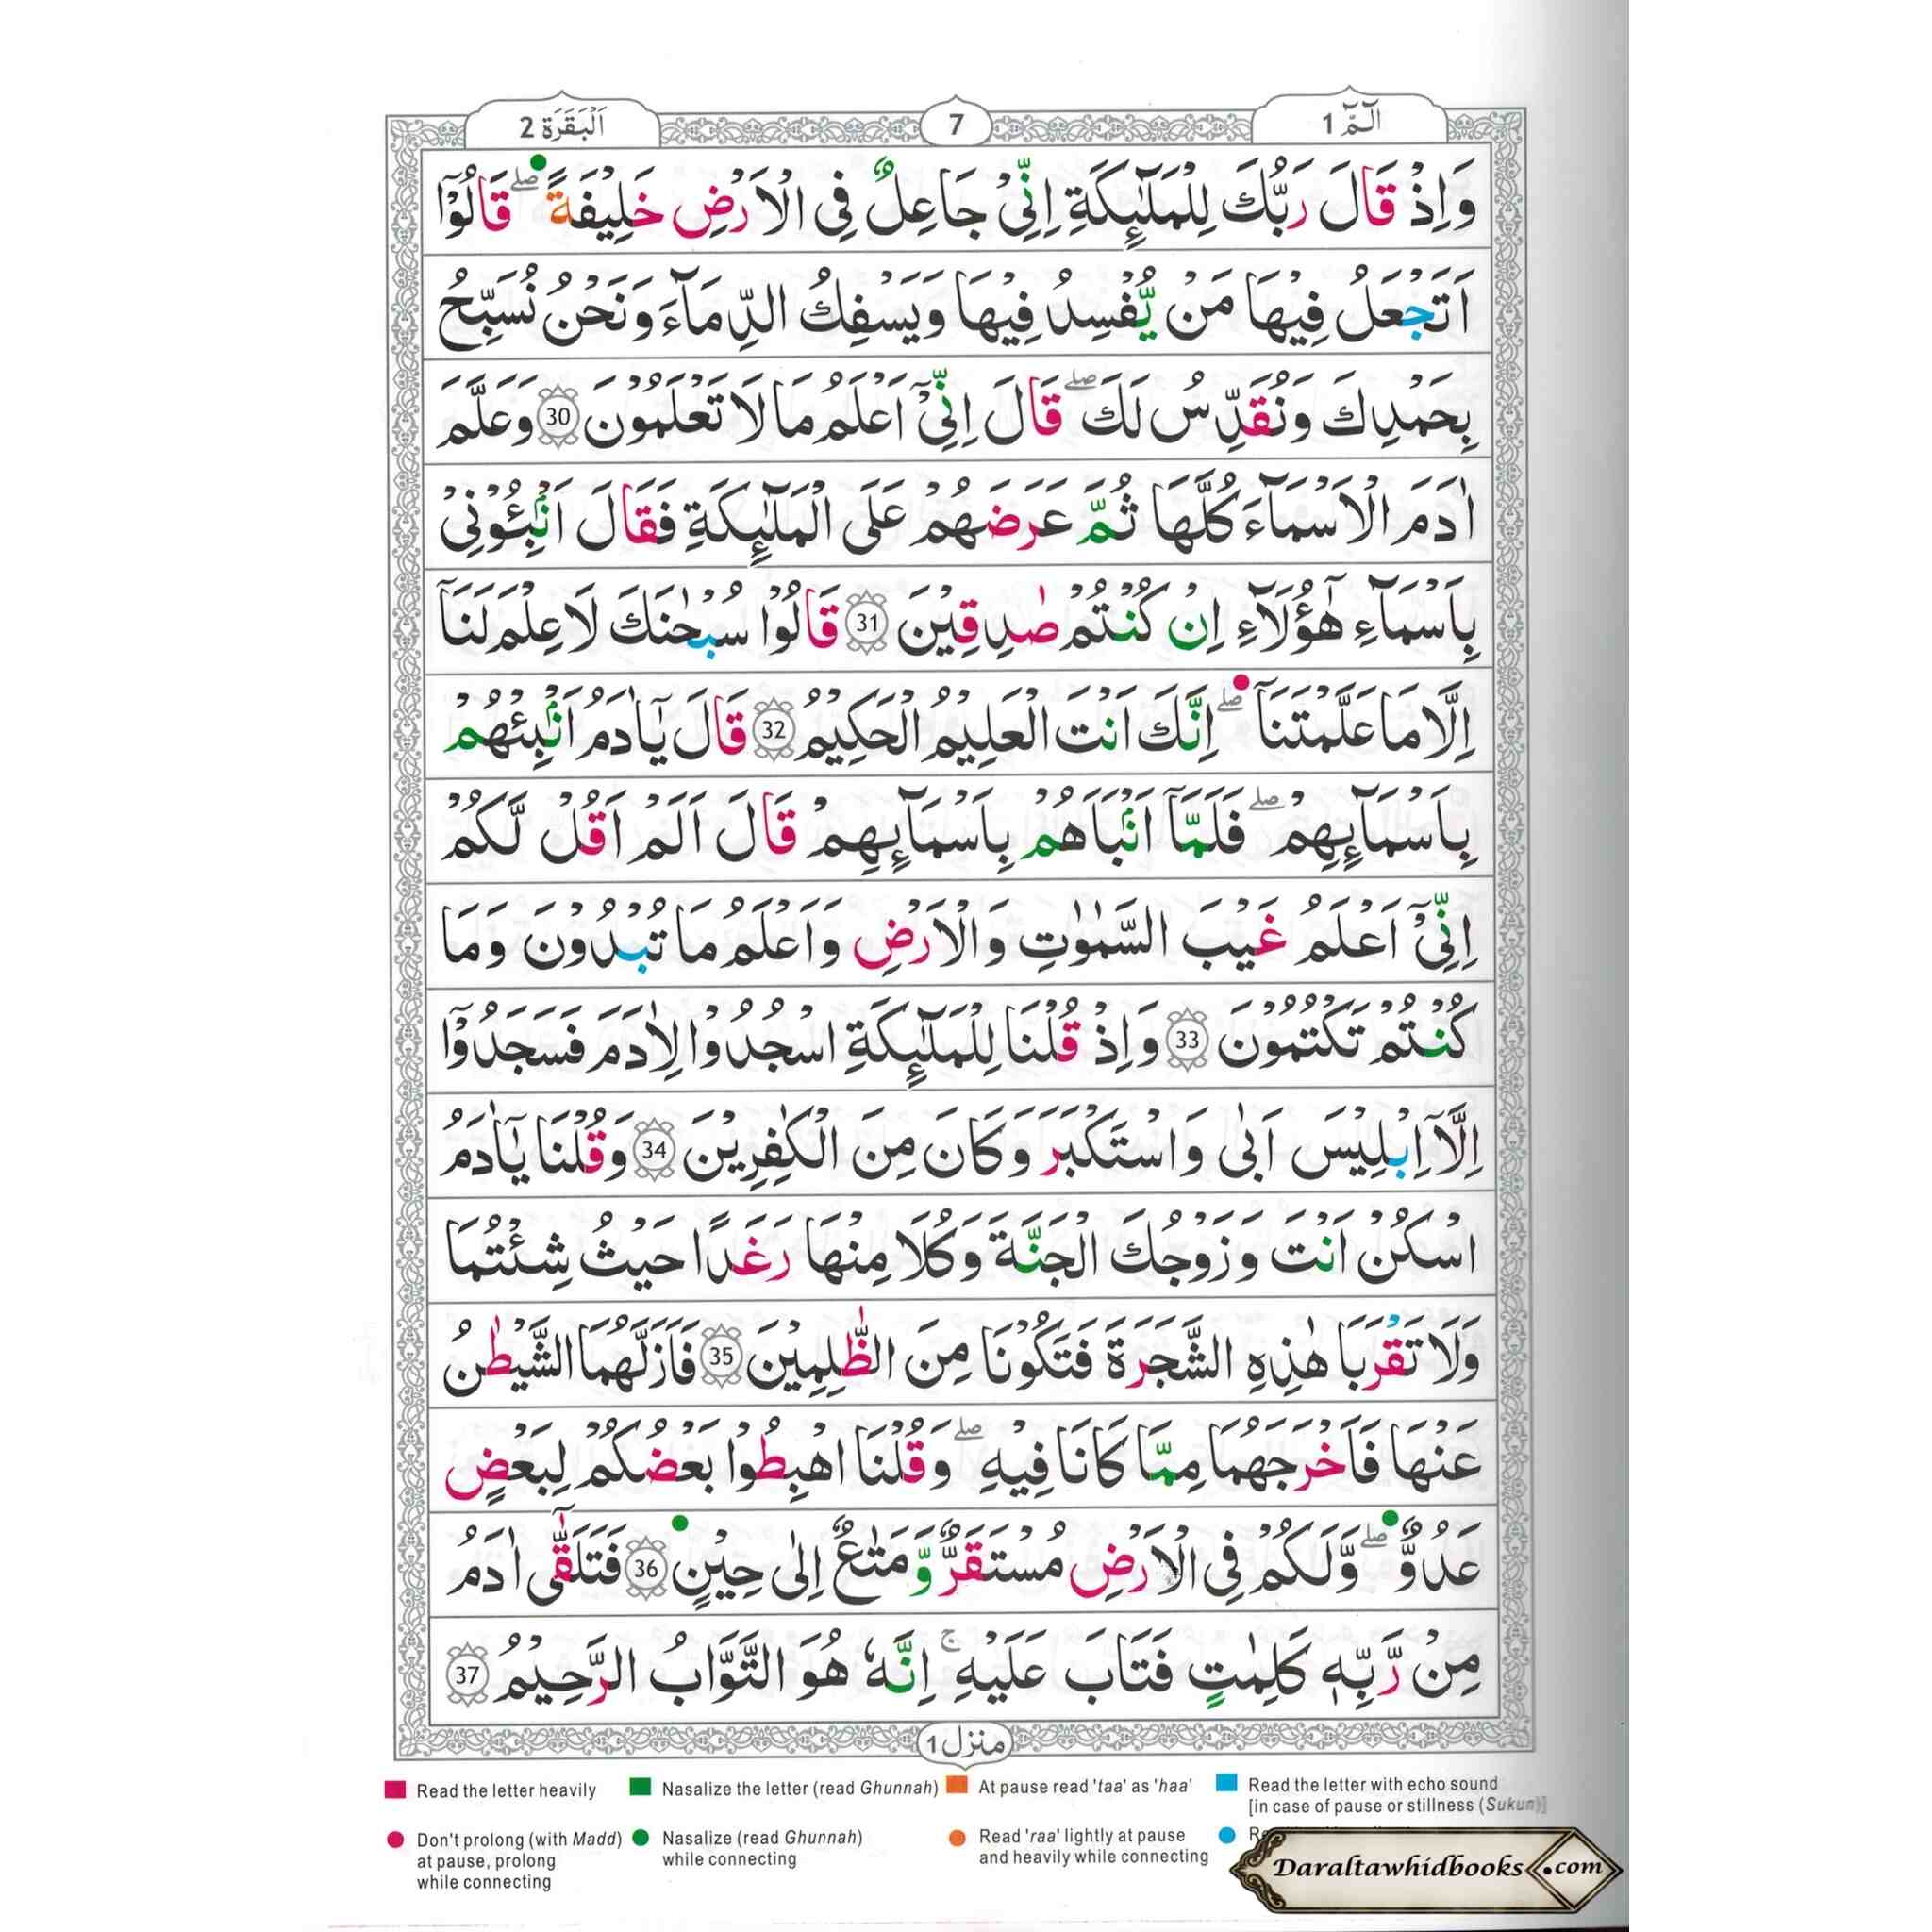 الٓمّٓ 1
7
اَلْبَقَرَة 2
وَاِذْ قَالَ رَبُّكَ لِلْمَلٰٓئِكَةِ اِنِّیْ جَاعِلٌ فِی الْاَرْضِ خَلِیْفَةً ؕصلے قَالُوْۤا
اَتَجْعَلُ فِیْهَا مَنْ یُّفْسِدُ فِیْهَا وَیَسْفِكُ الدِّمَآءَ وَنَحْنُ نُسَبِّحُ
بِحَمْدِكَ وَنُقَدِّسُ لَكَ صلے قَالَ اِنِّیْۤ اَعْلَمُ مَا لَا تَعْلَمُوْنَ 30 وَعَلَّمَ
اٰدَمَ الْاَسْمَآءَ كُلَّهَا ثُمَّ عَرَضَهُمْ عَلَی الْمَلٰٓئِكَةِ فَقَالَ اَنْۢبِـُٔوْنِیْ
بِاَسْمَآءِ هٰۤؤُلَآءِ اِنْ كُنْتُمْ صٰدِقِیْنَ 31 قَالُوْا سُبْحٰنَكَ لَا عِلْمَ لَنَاۤ
اِلَّا مَا عَلَّمْتَنَا صلے اِنَّكَ اَنْتَ الْعَلِیْمُ الْحَكِیْمُ 32 قَالَ یٰۤاٰدَمُ اَنْۢبِئْهُمْ
بِاَسْمَآئِهِمْ صلے فَلَمَّاۤ اَنْۢبَاَهُمْ بِاَسْمَآئِهِمْ قَالَ اَلَمْ اَقُلْ لَّكُمْ
اِنِّیْۤ اَعْلَمُ غَیْبَ السَّمٰوٰتِ وَالْاَرْضِ وَاَعْلَمُ مَا تُبْدُوْنَ وَمَا
كُنْتُمْ تَكْتُمُوْنَ 33 وَاِذْ قُلْنَا لِلْمَلٰٓئِكَةِ اسْجُدُوْا لِاٰدَمَ فَسَجَدُوْۤا
اِلَّاۤ اِبْلِیْسَ اَبٰی وَاسْتَكْبَرَ وَكَانَ مِنَ الْكٰفِرِیْنَ 34 وَقُلْنَا یٰۤاٰدَمُ
اسْكُنْ اَنْتَ وَزَوْجُكَ الْجَنَّةَ وَكُلَا مِنْهَا رَغَدًا حَیْثُ شِئْتُمَا
وَلَا تَقْرَبَا هٰذِهِ الشَّجَرَةَ فَتَكُوْنَا مِنَ الظّٰلِمِیْنَ 35 فَاَزَلَّهُمَا الشَّیْطٰنُ
عَنْهَا فَاَخْرَجَهُمَا مِمَّا كَانَا فِیْهِ صلے وَقُلْنَا اهْبِطُوْا بَعْضُكُمْ لِبَعْضٍ
عَدُوٌّ صلے وَّلَكُمْ فِی الْاَرْضِ مُسْتَقَرٌّ وَّمَتَاعٌ اِلٰی حِیْنٍ 36 فَتَلَقّٰۤی اٰدَمُ
مِنْ رَّبِّهٖ كَلِمٰتٍ فَتَابَ عَلَیْهِ ج اِنَّهٗ هُوَ التَّوَّابُ الرَّحِیْمُ 37
منزل 1
Read the letter heavily
Nasalize the letter (read Ghunnah)
At pause read 'taa' as 'haa'
Read the letter with echo sound
[in case of pause or stillness (Sukun)]
Don't prolong (with Madd)
at pause, prolong
while connecting
Nasalize (read Ghunnah)
while connecting
Read 'raa' lightly at pause
and heavily while connecting
Daraltawhidbooks.com